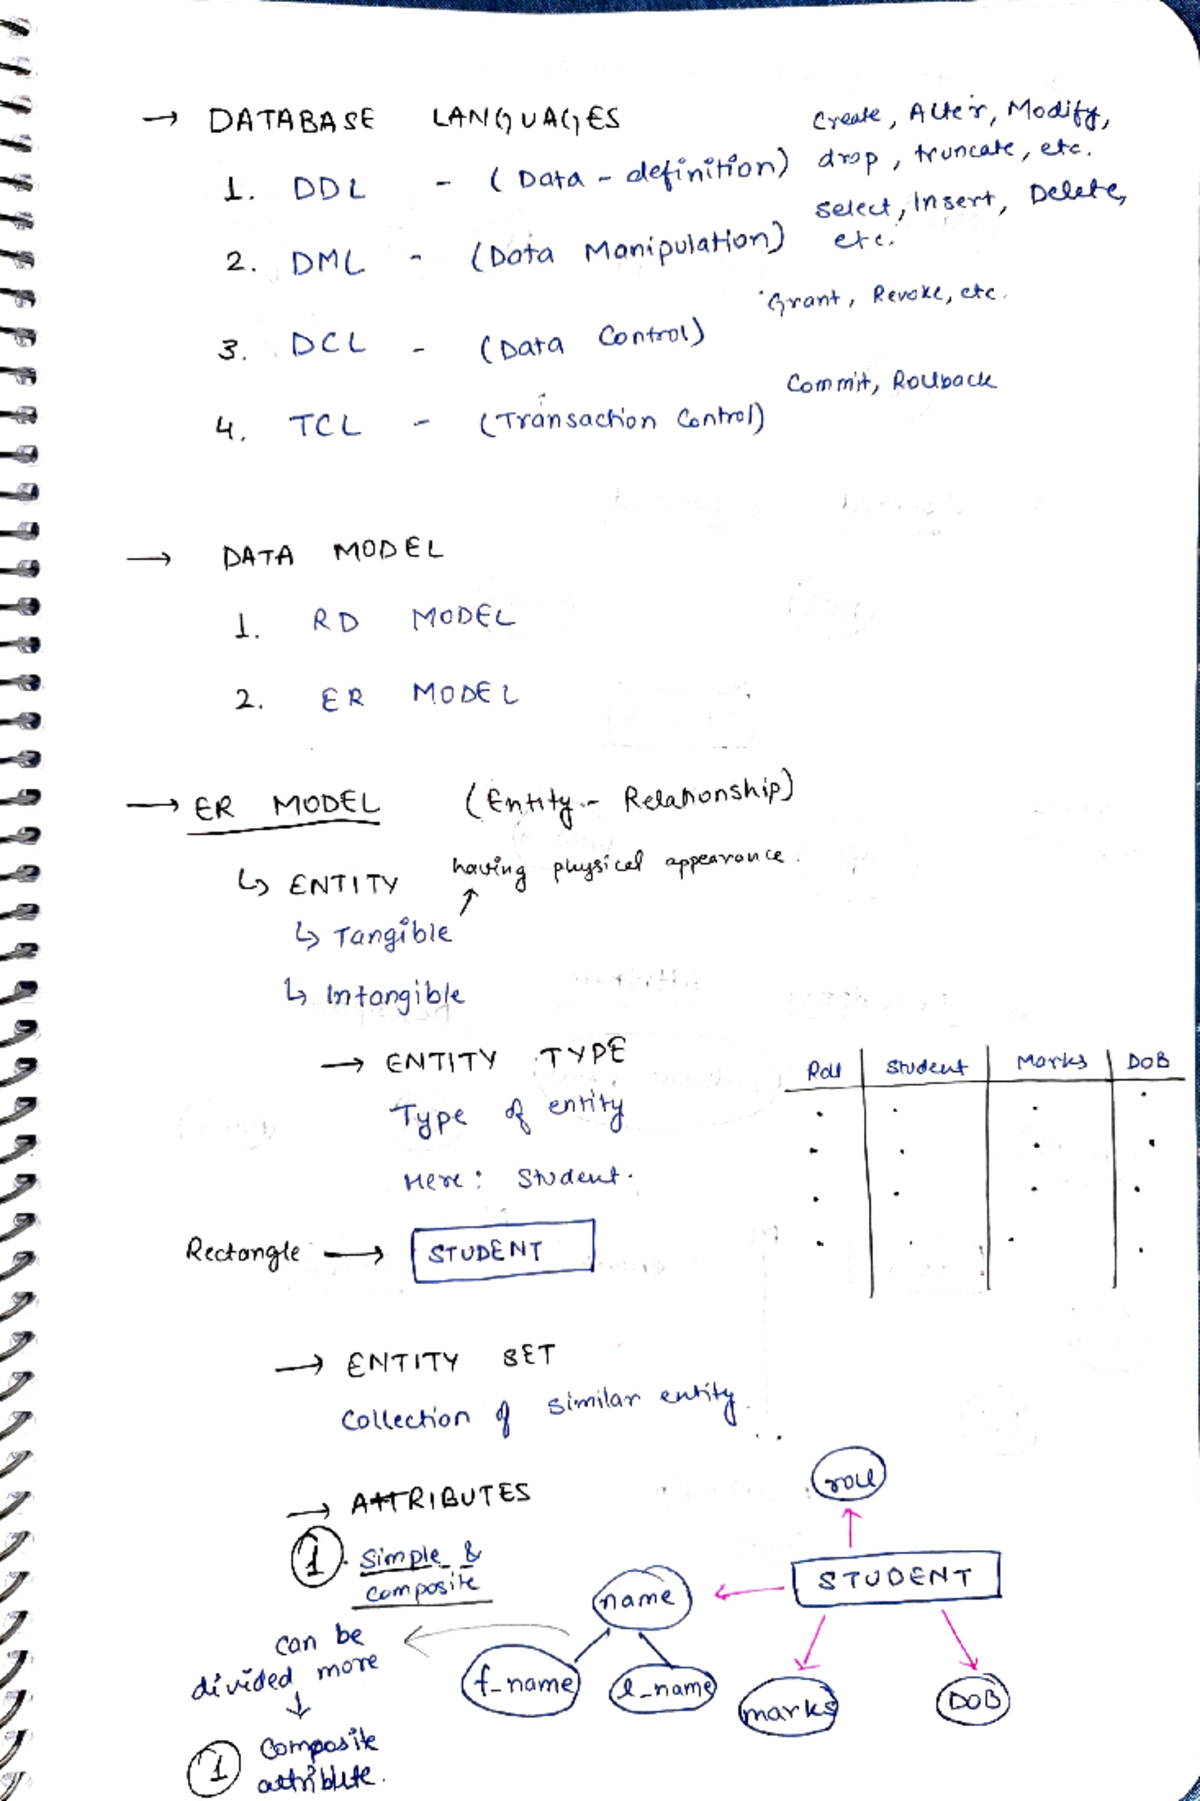 → DATABASE LANGUAGES
Create, Alter, Modify,
1. DDL - (Data - definition) drop, truncate, etc.
Select, Insert, Delete,
2. DML - (Data Manipulation) etc.
Grant, Revoke, etc.
3. DCL - (Data Control)
Commit, Rollback
4. TCL - (Transaction Control)
→ DATA MODEL
1. RD MODEL
2. ER MODEL
→ ER MODEL (Entity - Relationship)
↳ ENTITY having physical appearance.
↳ Tangible
↳ Intangible
→ ENTITY TYPE
Type of entity
Here: Student.
Roll Student Marks DOB
Rectangle → STUDENT
→ ENTITY SET
Collection of similar entity.
→ ATTRIBUTES
1. Simple &
composite
can be
divided more
↓
1 Composite
attribute.
roll
STUDENT
name
f_name l_name
marks
DOB